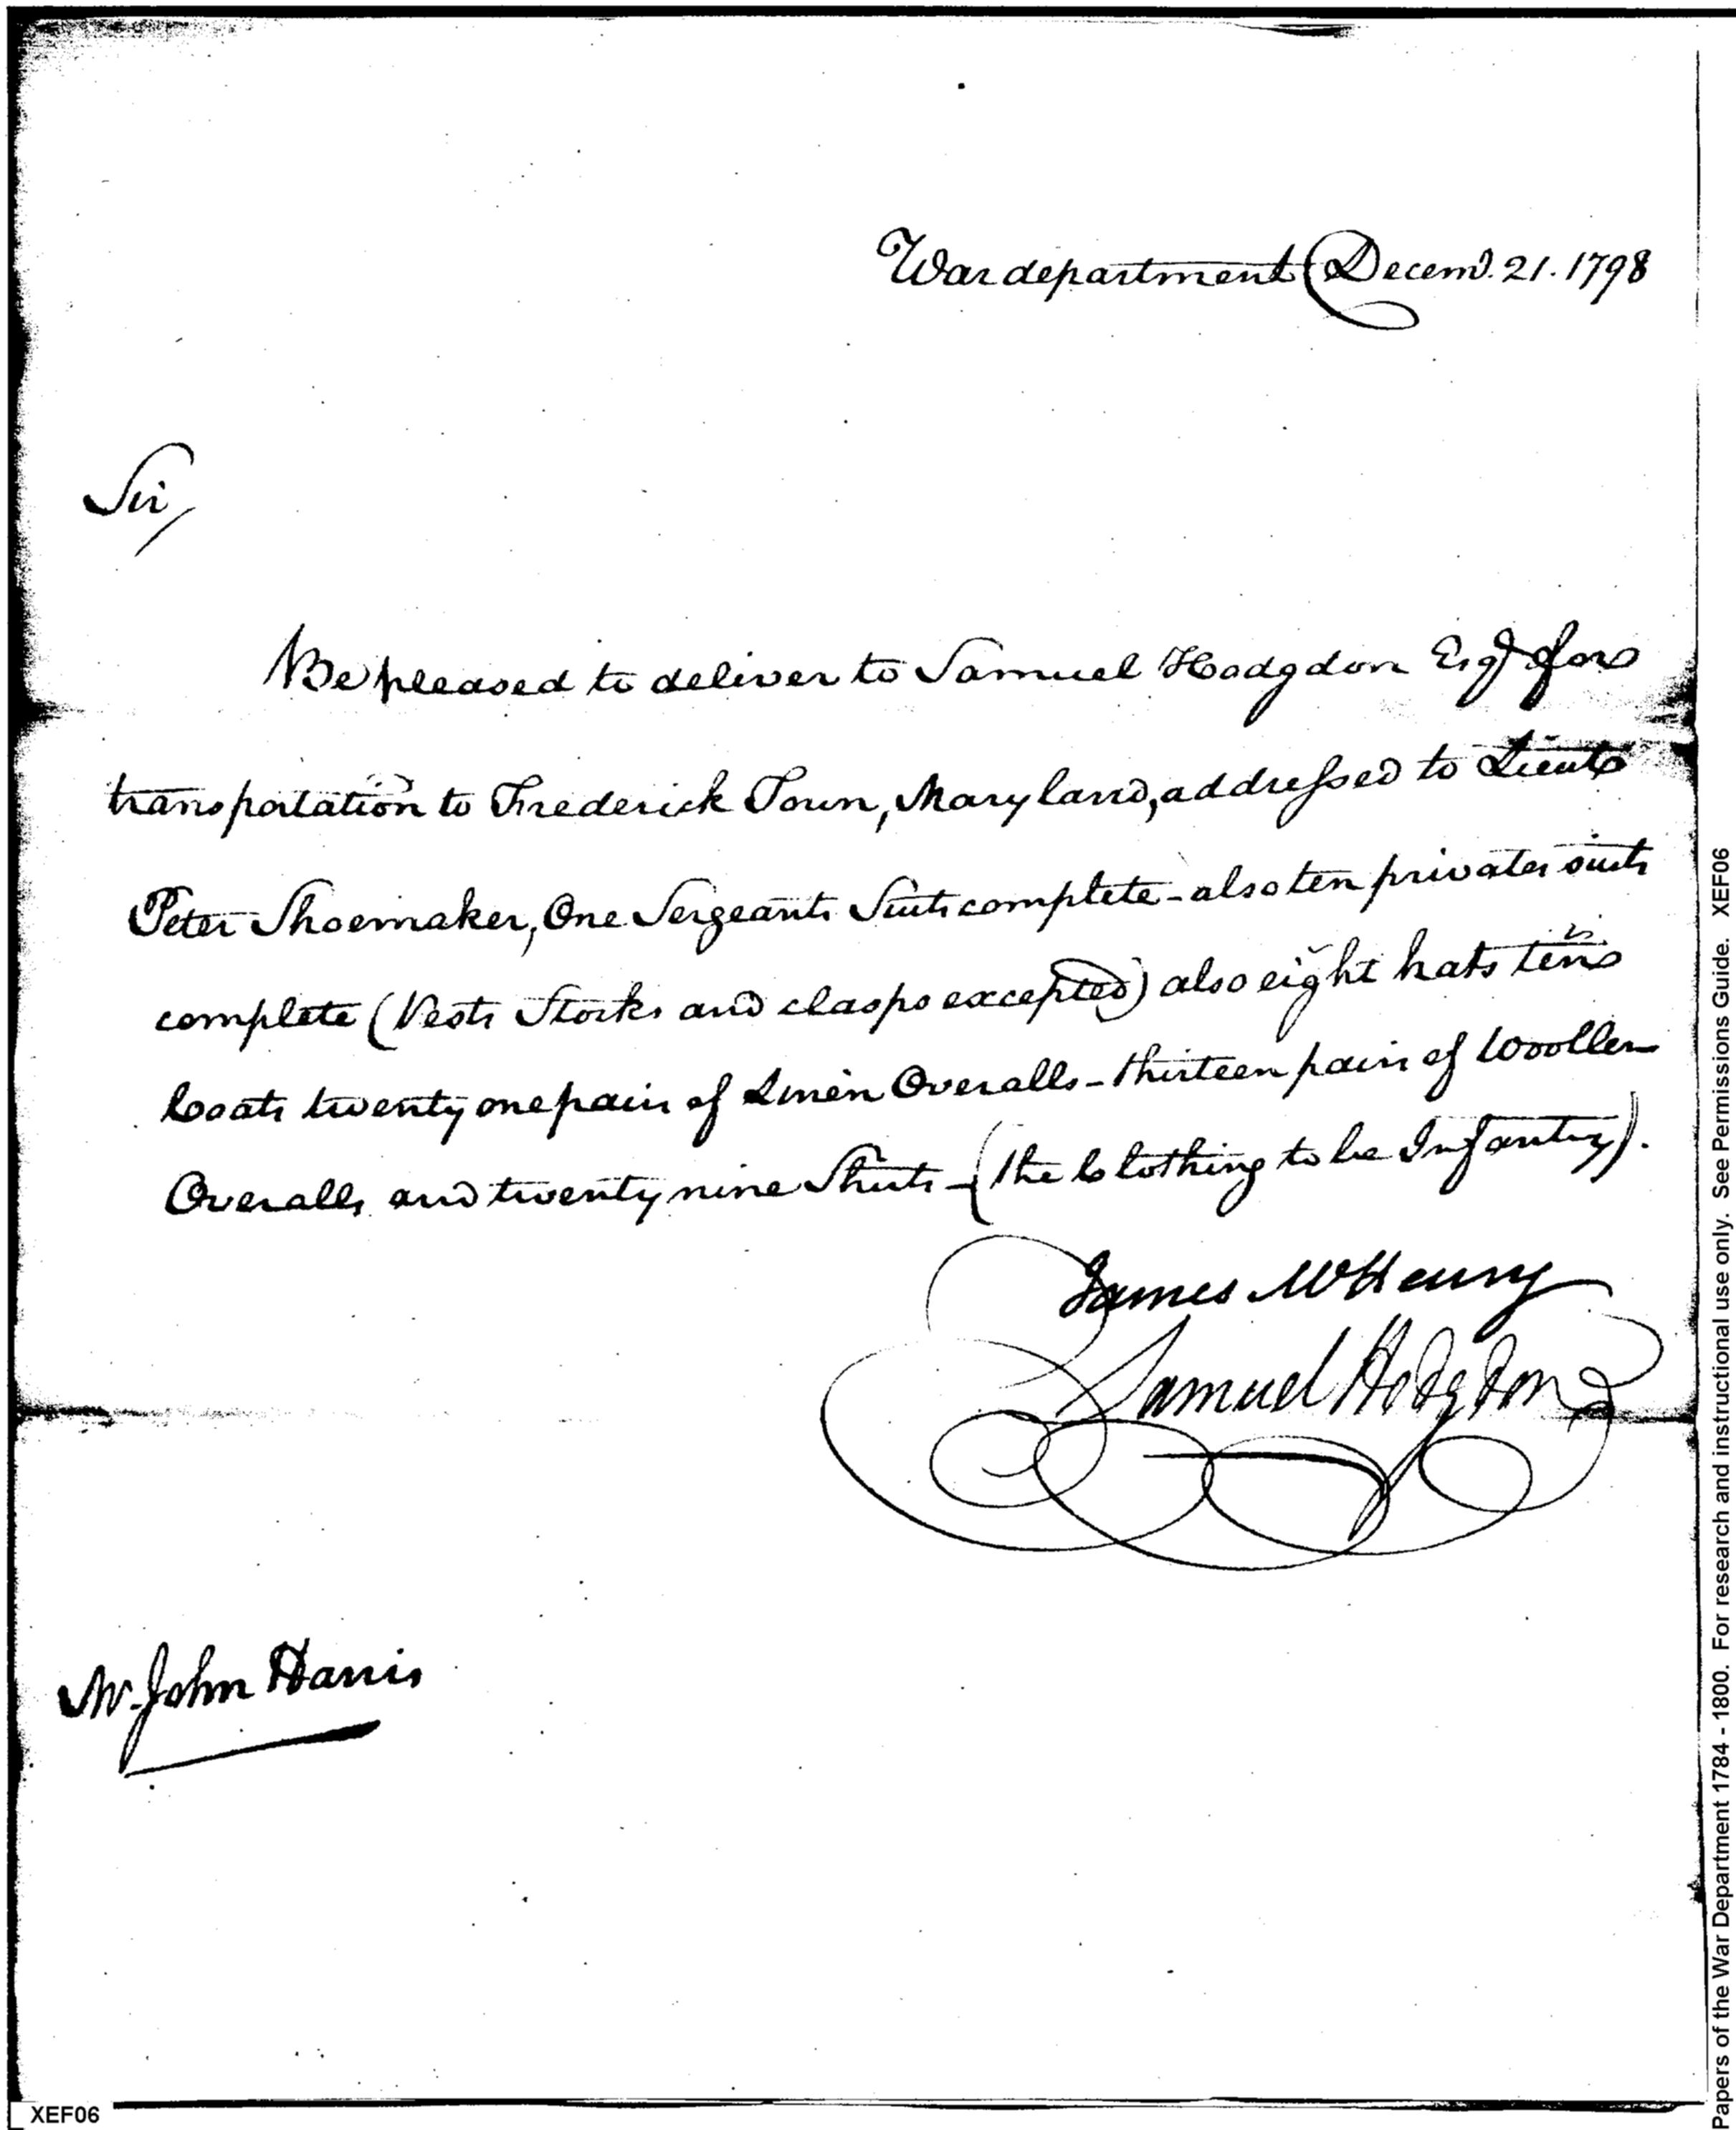 War department Decemr. 21. 1798
Sir,
Be pleased to deliver to Samuel Hodgdon Esqr. for
transportation to Frederick Town, Maryland, addressed to Lieut
Peter Shoemaker, One Sergeants Suit complete - also ten privates suits
complete (Vests Stocks and clasps excepted) also eight hats ten
Coats twenty one pairs of Linen Overalls - thirteen pairs of Woollen
Overalls and twenty nine Shirts - (the Clothing to be Infantry).
James McHenry
Samuel Hodgdon
Mr. John Harris
XEF06
Papers of the War Department 1784 - 1800. For research and instructional use only. See Permissions Guide. XEF06